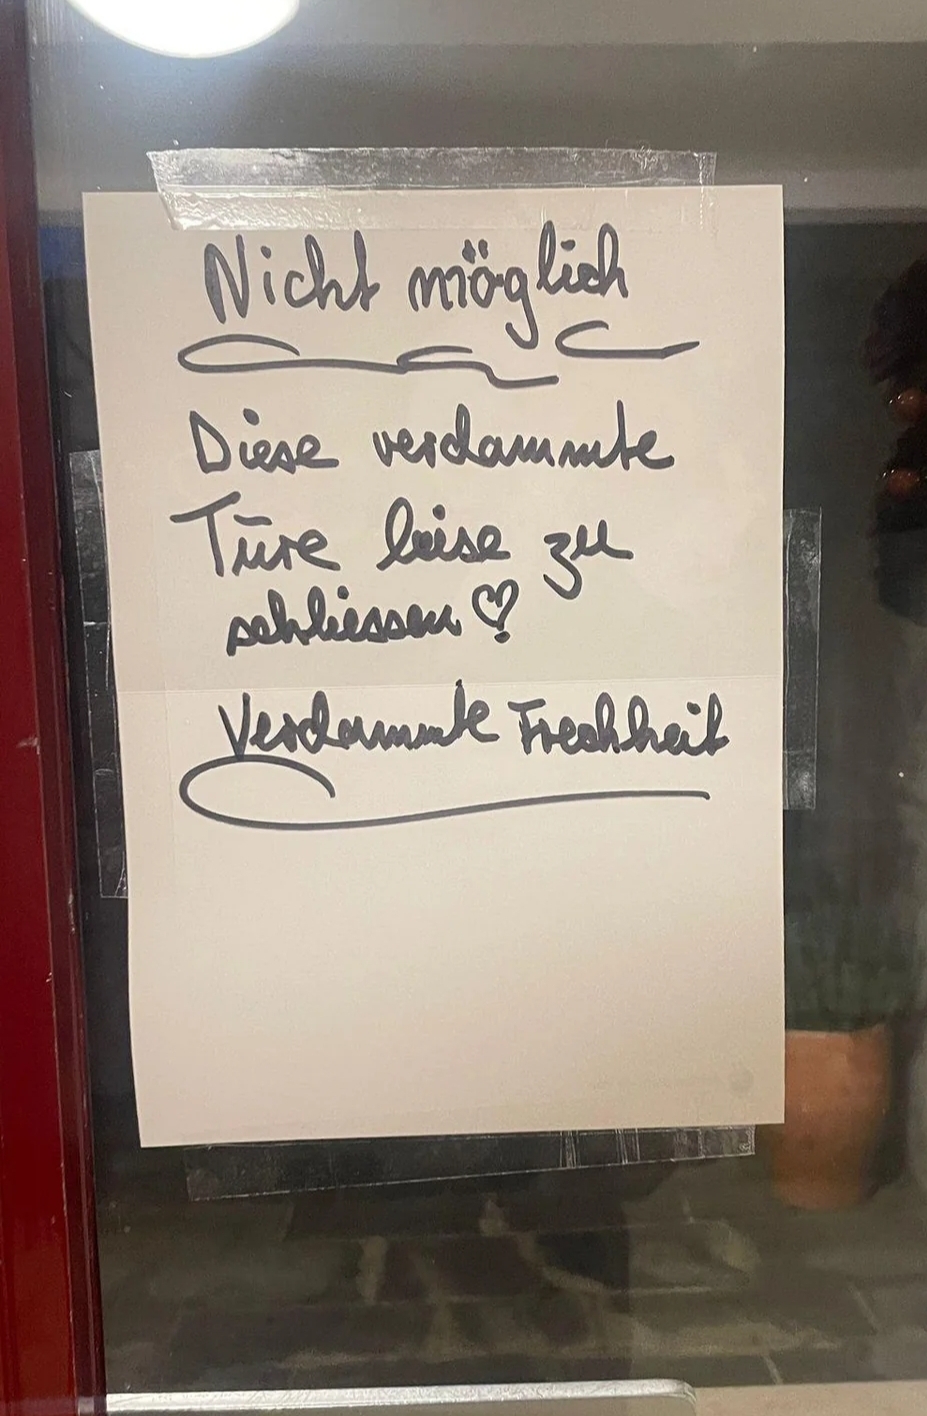 Nicht möglich
Diese verdammte
Türe leise zu
schliessen
Verdammte Frechheit